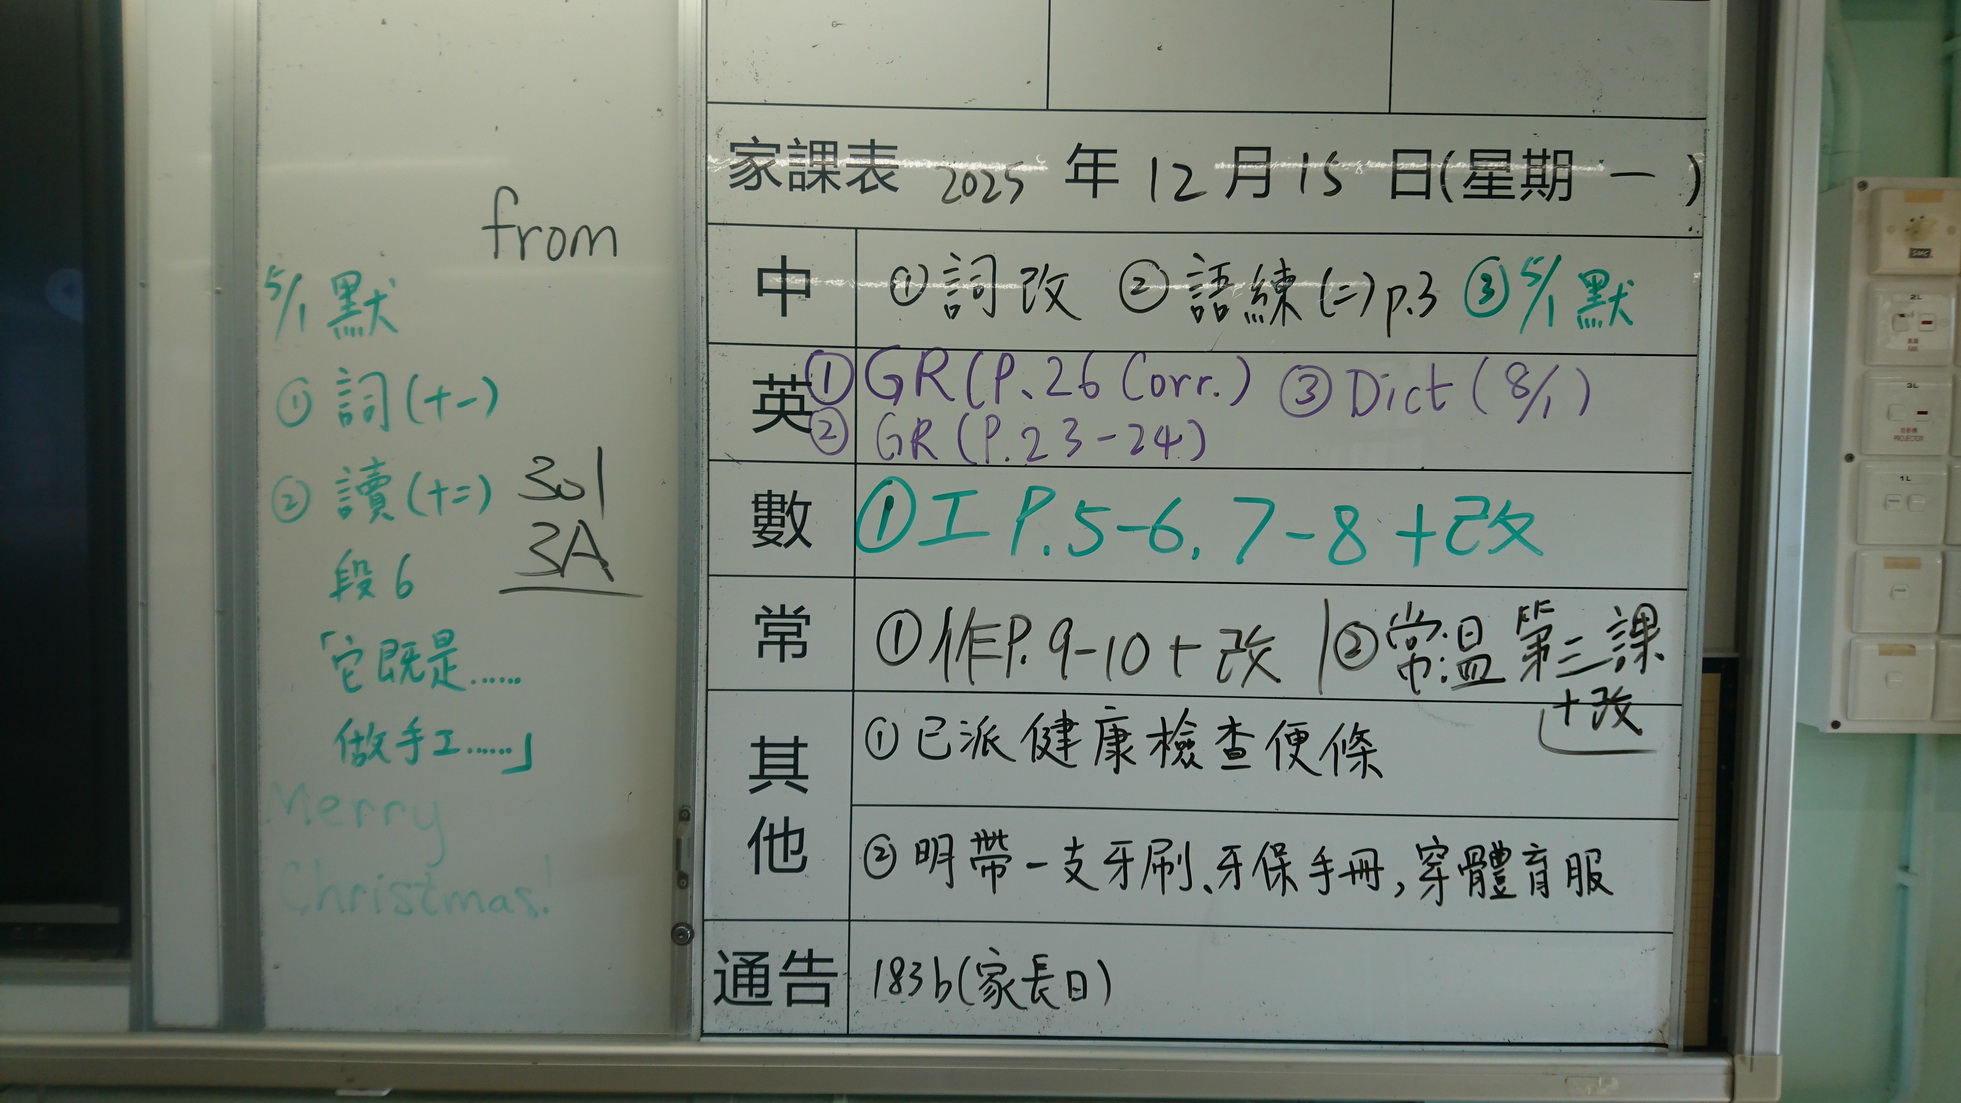 from
5/1 默
① 詞(十一)
② 讀(十二)
段6
「它既是......
做手工......」
301
3A
Merry
Christmas!
家課表 2025 年 12 月 15 日(星期 一 )
中 ①詞改 ②語練(二)p.3 ③5/1 默
英 ① GR(P.26 Corr.) ③ Dict (8/1)
② GR (P.23-24)
數 ①工 P.5-6, 7-8 +改
常 ①作P.9-10+改 ②常溫第三課
+改
其他 ①已派健康檢查便條
②明帶一支牙刷、牙保手冊,穿體育服
通告 183b(家長日)
2L
3L
PROJECTOR
1L